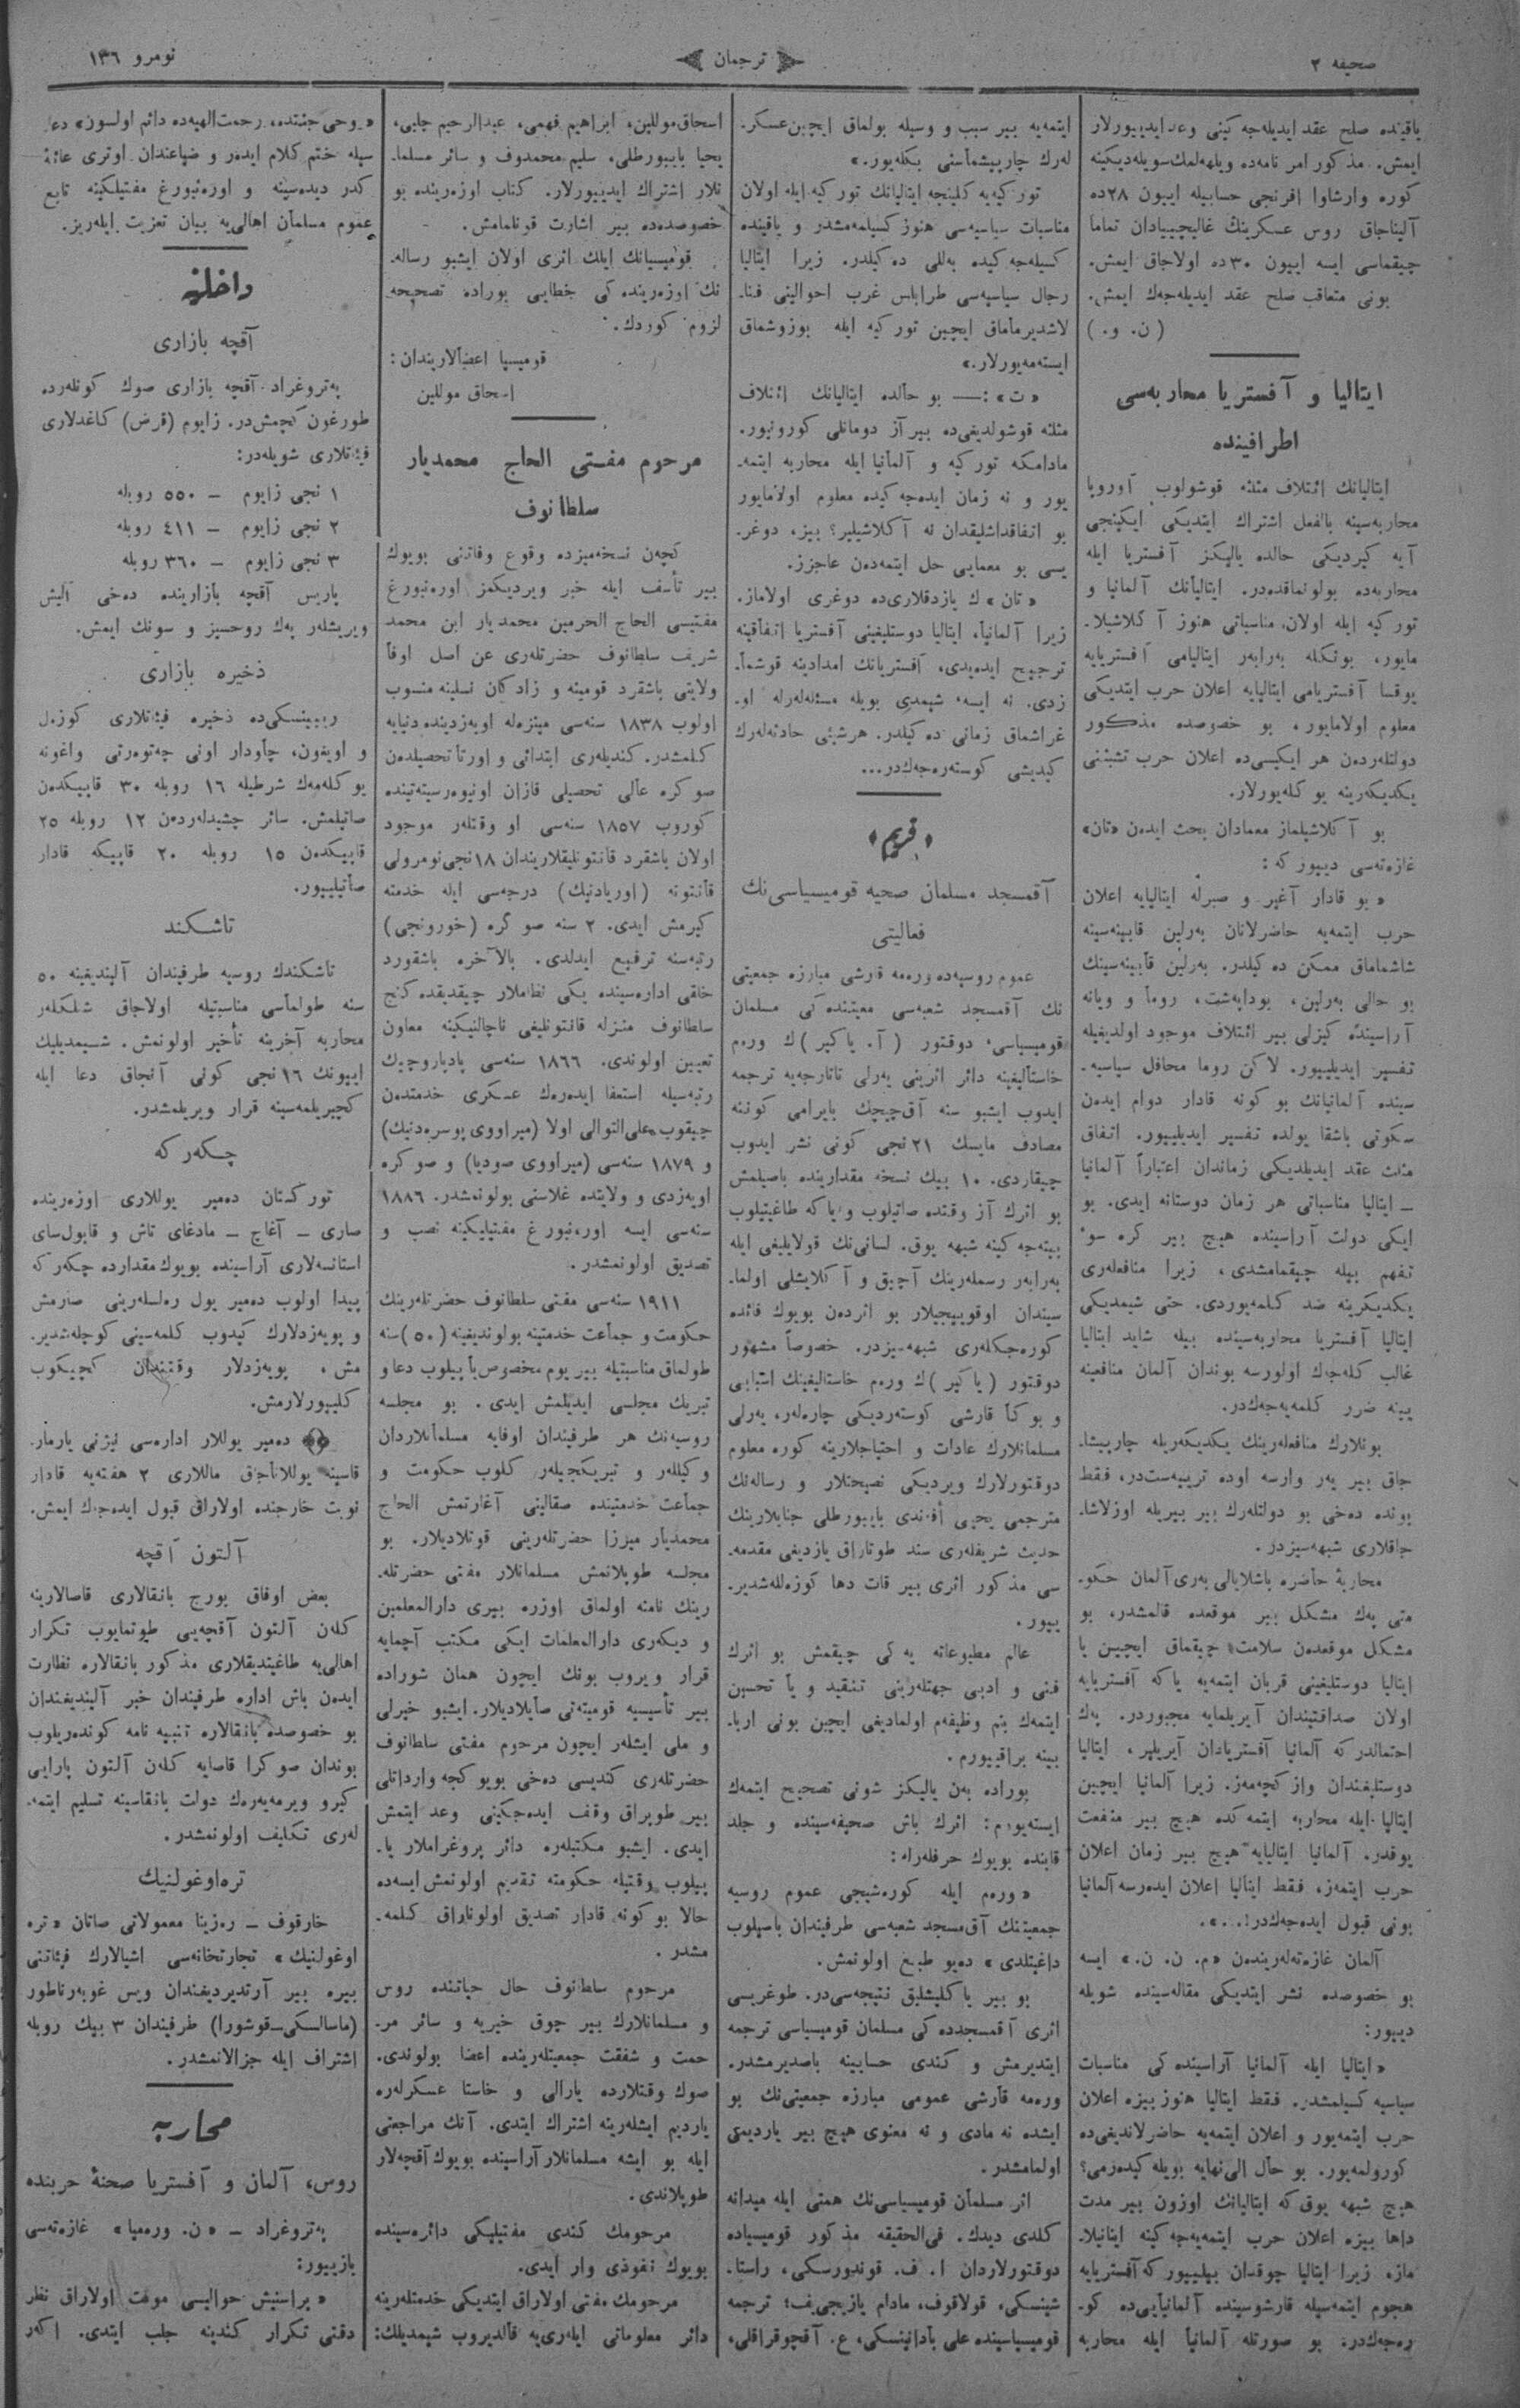 صحیفه ۲
ترجمان
نومرو ۱۳٦
یاقینده صلح عقد ایدیله‌جه کینی وعد ایدییورلار
ایمش. مذکور امر نامه‌ده ویلهه‌لمك سویله‌دیکینه
کوره وارشاوا افرنجی حسابیله اییون ۲۸ده
آلیناجاق روس عسکرینڭ غالیچییادان تماما
چیقماسی ایسه اییون ۳۰ده اولاجاق ایمش.
بونی متعاقب صلح عقد ایدیله‌جه‌ك ایمش.
(ن. و.)
ایتالیا و آفستریا محاربه‌سی
اطرافینده
ایتالیانك ائتلاف مثلثه قوشولوب آوروپا
محاربه‌سینه بالفعل اشتراك ایتدیکی ایکینجی
آیه کیردیکی حالده یالیکز آفستریا ایله
محاربه‌ده بولونماقده‌در. ایتالیانك آلمانیا و
تورکیه ایله اولان مناسباتی هنوز آکلاشیلا-
مایور، بونکله به‌رابه‌ر ایتالیامی آفستریایه
یوقسا آفستریامی ایتالیایه اعلان حرب ایتدیکی
معلوم اولامایور، بو خصوصده مذکور
دولتله‌رده‌ن هر ایکیسی‌ده اعلان حرب تشبثنی
یکدیکه‌رینه یوکله‌یورلار.
بو آکلاشیلماز معمادان بحث ایده‌ن «تان»
غازه‌ته‌سی دییور که:
«بو قادار آغیر و صبرله ایتالیایه اعلان
حرب ایتمه‌یه حاضرلانان به‌رلین قابینه‌سینه
شاشماماق ممکن ده‌کیلدر. به‌رلین قابینه‌سینك
بو حالی به‌رلین، بوداپه‌شت، روما و ویانه
آراسینده کیزلی بیر ائتلاف موجود اولدیغیله
تفسیر ایدیلیپور. لاکن روما محافل سیاسیه-
سینده آلمانیانك بوکونه قادار دوام ایده‌ن
سکوتی باشقا یولده تفسیر ایدیلیپور. اتفاق
مثلث عقد ایدیلدیکی زماندان اعتباراً آلمانیا
ـ ایتالیا مناسباتی هر زمان دوستانه ایدی. بو
ایکی دولت آراسینده هیچ بیر کره سوء
تفهم بیله چیقمامشدی، زیرا منافعله‌ری
یکدیکرینه ضد کلمه‌یوردی. حتی شیمدیکی
ایتالیا آفستریا محاربه‌سینده بیله شاید ایتالیا
غالب کله‌جك اولورسه بوندان آلمان منافعینه
یینه ضرر کلمه‌یه‌جه‌كدر.
بونلارك منافعله‌رینك یکدیکه‌ریله چارپیشا-
جاق بیر یه‌ر وارسه اوده تریپه‌ستدر، فقط
بونده ده‌خی بو دولتله‌رك بیر بیریله اوزلاشا-
جاقلاری شبهه‌سیزدر.
محاربهٔ حاضره باشلایالی به‌ری آلمان حکو-
متی په‌ك مشکل بیر موقعده قالمشدر، بو
مشکل موقعده‌ن سلامت چیقماق ایچیین یا
ایتالیا دوستلیغینی قربان ایتمه‌یه یاکه آفستریایه
اولان صداقتیندان آیریلمایه مجبوردر. په‌ك
احتمالدرکه آلمانیا آفستریادان آیریلیر، ایتالیا
دوستلیغندان واز کچه‌مه‌ز. زیرا آلمانیا ایچیین
ایتالیا ایله محاربه ایتمه‌کده هیچ بیر منفعت
یوقدر. آلمانیا ایتالیایه هیچ بیر زمان اعلان
حرب ایتمه‌ز، فقط ایتالیا اعلان ایده‌رسه آلمانیا
بونی قبول ایده‌جه‌كدر!...».
آلمان غازه‌ته‌له‌رینده‌ن «م. ن. ن.» ایسه
بو خصوصده نشر ایتدیکی مقاله‌سینده شویله
دییور:
«ایتالیا ایله آلمانیا آراسینده کی مناسبات
سیاسیه کسیلمشدر. فقط ایتالیا هنوز بیزه اعلان
حرب ایتمه‌یور و اعلان ایتمه‌یه حاضرلاندیغی‌ده
کورولمه‌یور. بو حال الی‌نهایه بویله کیده‌رمی؟
هیچ شبهه یوق که ایتالیانك اوزون بیر مدت
داها بیزه اعلان حرب ایتمه‌یه‌جه کینه اینانیلا-
ماز، زیرا ایتالیا چوقدان بیلییور که آفستریایه
هجوم ایتمه‌سیله قارشوسینده آلمانیایی‌ده کو-
ره‌جه‌كدر، بو صورتله آلمانیا ایله محاربه
ایتمه‌یه بیر سبب و وسیله بولماق ایچین عسکر-
له‌رك چارپیشماسنی بکله‌یور.»
تورکیه‌یه کلینجه ایتالیانك تورکیه ایله اولان
مناسبات سیاسیه‌سی هنوز کسیلمه‌مشدر و یاقینده
کسیله‌جه کیده به‌للی ده‌کیلدر. زیرا ایتالیا
رجال سیاسیه‌سی طرابلس غرب احوالینی فنا-
لاشدیرماماق ایچین تورکیه ایله بوزوشماق
ایسته‌مه‌یورلار.»
«ت»: — بو حالده ایتالیانك ائتلاف
مثلثه قوشولدیغی‌ده بیر آز دومانلی کورونیور.
مادامکه تورکیه و آلمانیا ایله محاربه ایتمه-
یور و نه زمان ایده‌جه کیده معلوم اولامایور
بو اتفاقداشلیقدان نه آکلاشیلیر؟ بیز، دوغر-
یسی بو معمایی حل ایتمه‌ده‌ن عاجزز.
«تان»ك یازدقلاری‌ده دوغری اولاماز.
زیرا آلمانیا، ایتالیا دوستلیغینی آفستریا اتفاقینه
ترجیح ایده‌یدی، آفستریانك امدادینه قوشما-
زدی. نه ایسه، شیمدی بویله مسئله‌لرله او-
غراشماق زمانی ده‌کیلدر. هرشیئی حادثه‌له‌رك
کیدیشی کوسته‌ره‌جه‌كدر...
«قریم»
آقمسجد مسلمان صحیه قومیسیاسی‌نك
فعالیتی
عموم روسیه‌ده وره‌مه قارشی مبارزه جمعیتی
نك آقمسجد شعبه‌سی معیتنده کی مسلمان
قومیسیاسی، دوقتور (آ. یاکیر)ك وره‌م
خاستالیغینه دائر اثرینی یه‌رلی تاتارجه‌یه ترجمه
ایدوب ایشبو سنه آق‌چیچك بایرامی کوننه
مصادف مایسك ۲۱نجی کونی نشر ایدوب
چیقاردی. ۱۰ بیك نسخه مقدارینده باصیلمش
بو اثرك آز وقتده صاتیلوب ویاکه طاغیتیلوب
بیته‌جه کینه شبهه یوق. لسانی‌نك قولایلیغی ایله
به‌رابه‌ر رسمله‌رینك آچیق و آکلایشلی اولما-
سیندان اوقوییجیلار بو اثرده‌ن بویوك فائده
کوره‌جکله‌ری شبهه‌سیزدر. خصوصاً مشهور
دوقتور (یاکیر)ك وره‌م خاستالیغینك اسبابی
و بوکا قارشی کوسته‌ردیکی چاره‌له‌ر، یه‌رلی
مسلمانلارك عادات و احتیاجلارینه کوره معلوم
دوقتورلارك ویردیکی نصیحتلار و رساله‌نك
مترجمی یحیی أفندی بایبورطلی جنابلارینك
حدیث شریفله‌ری سند طوتاراق یازدیغی مقدمه-
سی مذکور اثری بیر قات دها کوزه‌للشدیر-
ییور.
عالم مطبوعاته یه‌کی چیقمش بو اثرك
فنی و ادبی جهتله‌رینی تنقید و یا تحسین
ایتمه‌ك بنم وظیفه‌م اولمادیغی ایچین بونی اربا-
بینه براقییورم.
بوراده به‌ن یالیکز شونی تصحیح ایتمه‌ك
ایسته‌یورم: اثرك باش صحیفه‌سینده و جلد
قابنده بویوك حرفله‌رله:
«وره‌م ایله کوره‌شیجی عموم روسیه
جمعیتنك آق‌مسجد شعبه‌سی طرفیندان باصیلوب
داغیتلدی» ده‌یو طبع اولونمش.
بو بیر یاکلیشلیق نتیجه‌سی‌در. طوغریسی
اثری آقمسجدده کی مسلمان قومیسیاسی ترجمه
ایتدیرمش و کندی حسابینه باصدیرمشدر.
وره‌مه قارشی عمومی مبارزه جمعیتی‌نك بو
ایشده نه مادی و نه معنوی هیچ بیر یاردیمی
اولمامشدر.
اثر مسلمان قومیسیاسی‌نك همتی ایله میدانه
کلدی دیدك. فی‌الحقیقه مذکور قومیسیاده
دوقتورلاردان ا. ف. قوندورسکی، راستا-
شینسکی، قولاقوف، مادام یازیجی‌یف؛ ترجمه
قومیسیاسینده علی بادانینسکی، ع. آقچوقراقلی،
اسحاق موللین، ابراهیم فهمی، عبدالرحیم چلبی،
یحیا بایبورطلی، سلیم محمدوف و سائر مسلما-
نلار اشتراك ایدییورلار. کتاب اوزه‌رینده بو
خصوصده‌ده بیر اشارت قونلمامش.
قومیسیانك ایلك اثری اولان ایشبو رساله-
نك اوزه‌رینده کی خطایی بوراده تصحیحه
لزوم کوردك.
قومیسیا اعضالاریندان:
اسحاق موللین
مرحوم مفتی الحاج محمدیار
سلطانوف
کچه‌ن نسخه‌میزده وقوع وفاتنی بویوك
بیر تأسف ایله خبر ویردیکمز اوره‌نبورغ
مفتیسی الحاج الحرمین محمدیار ابن محمد
شریف سلطانوف حضرتله‌ری عن اصل اوفا
ولایتی باشقرد قومینه و زادکان نسلینه منسوب
اولوب ۱۸۳۸ سنه‌سی مینزه‌له اویه‌زدینده دنیایه
کلمشدر. کندیله‌ری ابتدائی و اورتا تحصیلده‌ن
صوکره عالی تحصیلی قازان اونیوه‌رسیته‌تینده
کوروب ۱۸۵۷ سنه‌سی او وقتله‌ر موجود
اولان باشقرد قانتونلیقلاریندان ۱۸نجی نومرولی
قانتونه (اوریادنیك) درجه‌سی ایله خدمته
کیرمش ایدی. ۲ سنه صوکره (خورونجی)
رتبه‌سنه ترفیع ایدلدی. بالآخره باشقورد
خلقی اداره‌سینده یکی نظاملار چیقدیقده کنج
سلطانوف منزله قانتونلیغی ناچالنیکینه معاون
تعیین اولوندی. ۱۸٦٦ سنه‌سی پادپاروچیك
رتبه‌سیله استعفا ایده‌ره‌ك عسکری خدمتده‌ن
چیقوب علی‌التوالی اولا (میراووی پوسره‌دنیك)
و ۱۸۷۹ سنه‌سی (میراووی صودیا) و صوکره
اویه‌زدی و ولایتده غلاسنی بولونمشدر. ۱۸۸٦
سنه‌سی ایسه اوره‌نبورغ مفتیلیکینه نصب و
تصدیق اولونمشدر.
۱۹۱۱ سنه‌سی مفتی سلطانوف حضرتله‌رینك
حکومت و جماعت خدمتینه بولوندیغینه (۵۰) سنه
طولماق مناسبتیله بیر یوم مخصوص یاپیلوب دعا و
تبریك مجلسی ایدیلمش ایدی. بو مجلسه
روسیه‌نك هر طرفیندان اوفایه مسلمانلاردان
وکیللر و تبریکجیله‌ر کلوب حکومت و
جماعت خدمتینده صقالینی آغارتمش الحاج
محمدیار میرزا حضرتله‌رینی قوتلادیلار. بو
مجلسه طوپلانمش مسلمانلار مفتی حضرتله-
رینك نامنه اولماق اوزره بیری دارالمعلمین
و دیکه‌ری دارالمعلمات ایکی مکتب آچمایه
قرار ویروب بونك ایچون همان شوراده
بیر تأسیسیه قومیته‌تی صایلادیلار. ایشبو خیرلی
و ملی ایشله‌ر ایچون مرحوم مفتی سلطانوف
حضرتله‌ری کندیسی ده‌خی بویوکجه وارداتلی
بیر طوپراق وقف ایده‌جکینی وعد ایتمش
ایدی. ایشبو مکتبله‌ره دائر پروغراملار یا-
پیلوب وقتیله حکومته تقدیم اولونمش ایسه‌ده
حالا بوکونه قادار تصدیق اولوناراق کلمه-
مشدر.
مرحوم سلطانوف حال حیاتنده روس
و مسلمانلارك بیر چوق خیریه و سائر مر-
حمت و شفقت جمعیتله‌رینده اعضا بولوندی.
صوك وقتلارده یارالی و خاستا عسکرله‌ره
یاردیم ایشله‌رینه اشتراك ایتدی. آنك مراجعتی
ایله بو ایشه مسلمانلار آراسینده بویوك آقچه‌لار
طوپلاندی.
مرحومك کندی مفتیلیکی دائره‌سینده
بویوك نفوذی وار ایدی.
مرحومك مفتی اولاراق ایتدیکی خدمتله‌رینه
دائر معلوماتی ایله‌ری‌یه قالدیروب شیمدیلك:
«روحی جنتده، رحمت الهیه‌ده دائم اولسون» دعا-
سیله ختم کلام ایده‌ر و ضیاعندان اوتری عائلهٔ
کدر دیده‌سینه و اوره‌نبورغ مفتیلیکینه تابع
عموم مسلمان اهالی‌یه بیان تعزیت ایله‌ریز.
داخلیه
آقچه بازاری
په‌تروغراد آقچه بازاری صوك کونله‌رده
طورغون کچمش‌در. زایوم (قرض) کاغدلاری
فیئاتلاری شویله‌در:
۱ نجی زایوم — ۵۵۰ روبله
۲ نجی زایوم — ٤۱۱ روبله
۳ نجی زایوم — ۳٦۰ روبله
پاریس آقچه بازارینده ده‌خی آلیش
ویریشله‌ر په‌ك روحسیز و سونك ایمش.
ذخیره بازاری
ریبینسکی‌ده ذخیره فیئاتلاری کوزه‌ل
و اویغون، چاودار اونی چه‌توه‌رتی واغونه
یوکله‌مه‌ك شرطیله ۱٦ روبله ۳۰ قاپیکده‌ن
صاتیلمش. سائر چشیدله‌رده‌ن ۱۲ روبله ۲۵
قاپیکده‌ن ۱۵ روبله ۲۰ قاپیکه قادار
صاتیلییور.
تاشکند
تاشکندك روسیه طرفیندان آلیندیغینه ۵۰
سنه طولماسی مناسبتیله اولاجاق شنلکله‌ر
محاربه آخرینه تأخیر اولونمش. شیمدیلیك
اییونك ۱٦نجی کونی آنجاق دعا ایله
کچیریلمه‌سینه قرار ویریلمشدر.
چکه‌رکه
تورکستان ده‌میر یوللاری اوزه‌رینده
صاری ـ آغاچ ـ مادغای تاش و قابول‌سای
استانسه‌لاری آراسینده بویوك مقدارده چکه‌رکه
پیدا اولوب ده‌میر یول ره‌لسله‌رینی صارمش
و پویه‌زدلارك کیدوب کلمه‌سینی کوچله‌شدیر-
مش، پویه‌زدلار وقتندان کچیکوب
کلیپورلارمش.
ده‌میر یوللار اداره‌سی نیژنی یارمار-
قاسینه یوللاناجق ماللاری ۲ هفته‌یه قادار
نوبت خارجنده اولاراق قبول ایده‌جك ایمش.
آلتون آقچه
بعض اوفاق بورج بانقالاری قاصالارینه
کله‌ن آلتون آقچه‌یی طوتمایوب تکرار
اهالی‌یه طاغیتدیقلاری مذکور بانقالاره نظارت
ایده‌ن باش اداره طرفیندان خبر آلیندیغندان
بو خصوصده بانقالاره تنبیه نامه کونده‌ریلوب
بوندان صوکرا قاصایه کله‌ن آلتون پارایی
کیرو ویرمه‌یه‌ره‌ك دولت بانقاسینه تسلیم ایتمه-
له‌ری تکلیف اولونمشدر.
تره‌اوغولنیك
خارقوف ـ ره‌زینا معمولاتی صاتان «تره
اوغولنیك» تجارتخانه‌سی اشیالارك فیئاتنی
بیره بیر آرتدیردیغندان ویس غوبه‌رناطور
(ماسالسکی-قوشورا) طرفیندان ۳ بیك روبله
اشتراف ایله جزالانمشدر.
محاربه
روس، آلمان و آفستریا صحنهٔ حربنده
په‌تروغراد ـ «ن. وره‌میا» غازه‌ته‌سی
یازییور:
«براسنیش حوالیسی موقت اولاراق نظر
دقتی تکرار کندینه جلب ایتدی. اکه‌ر